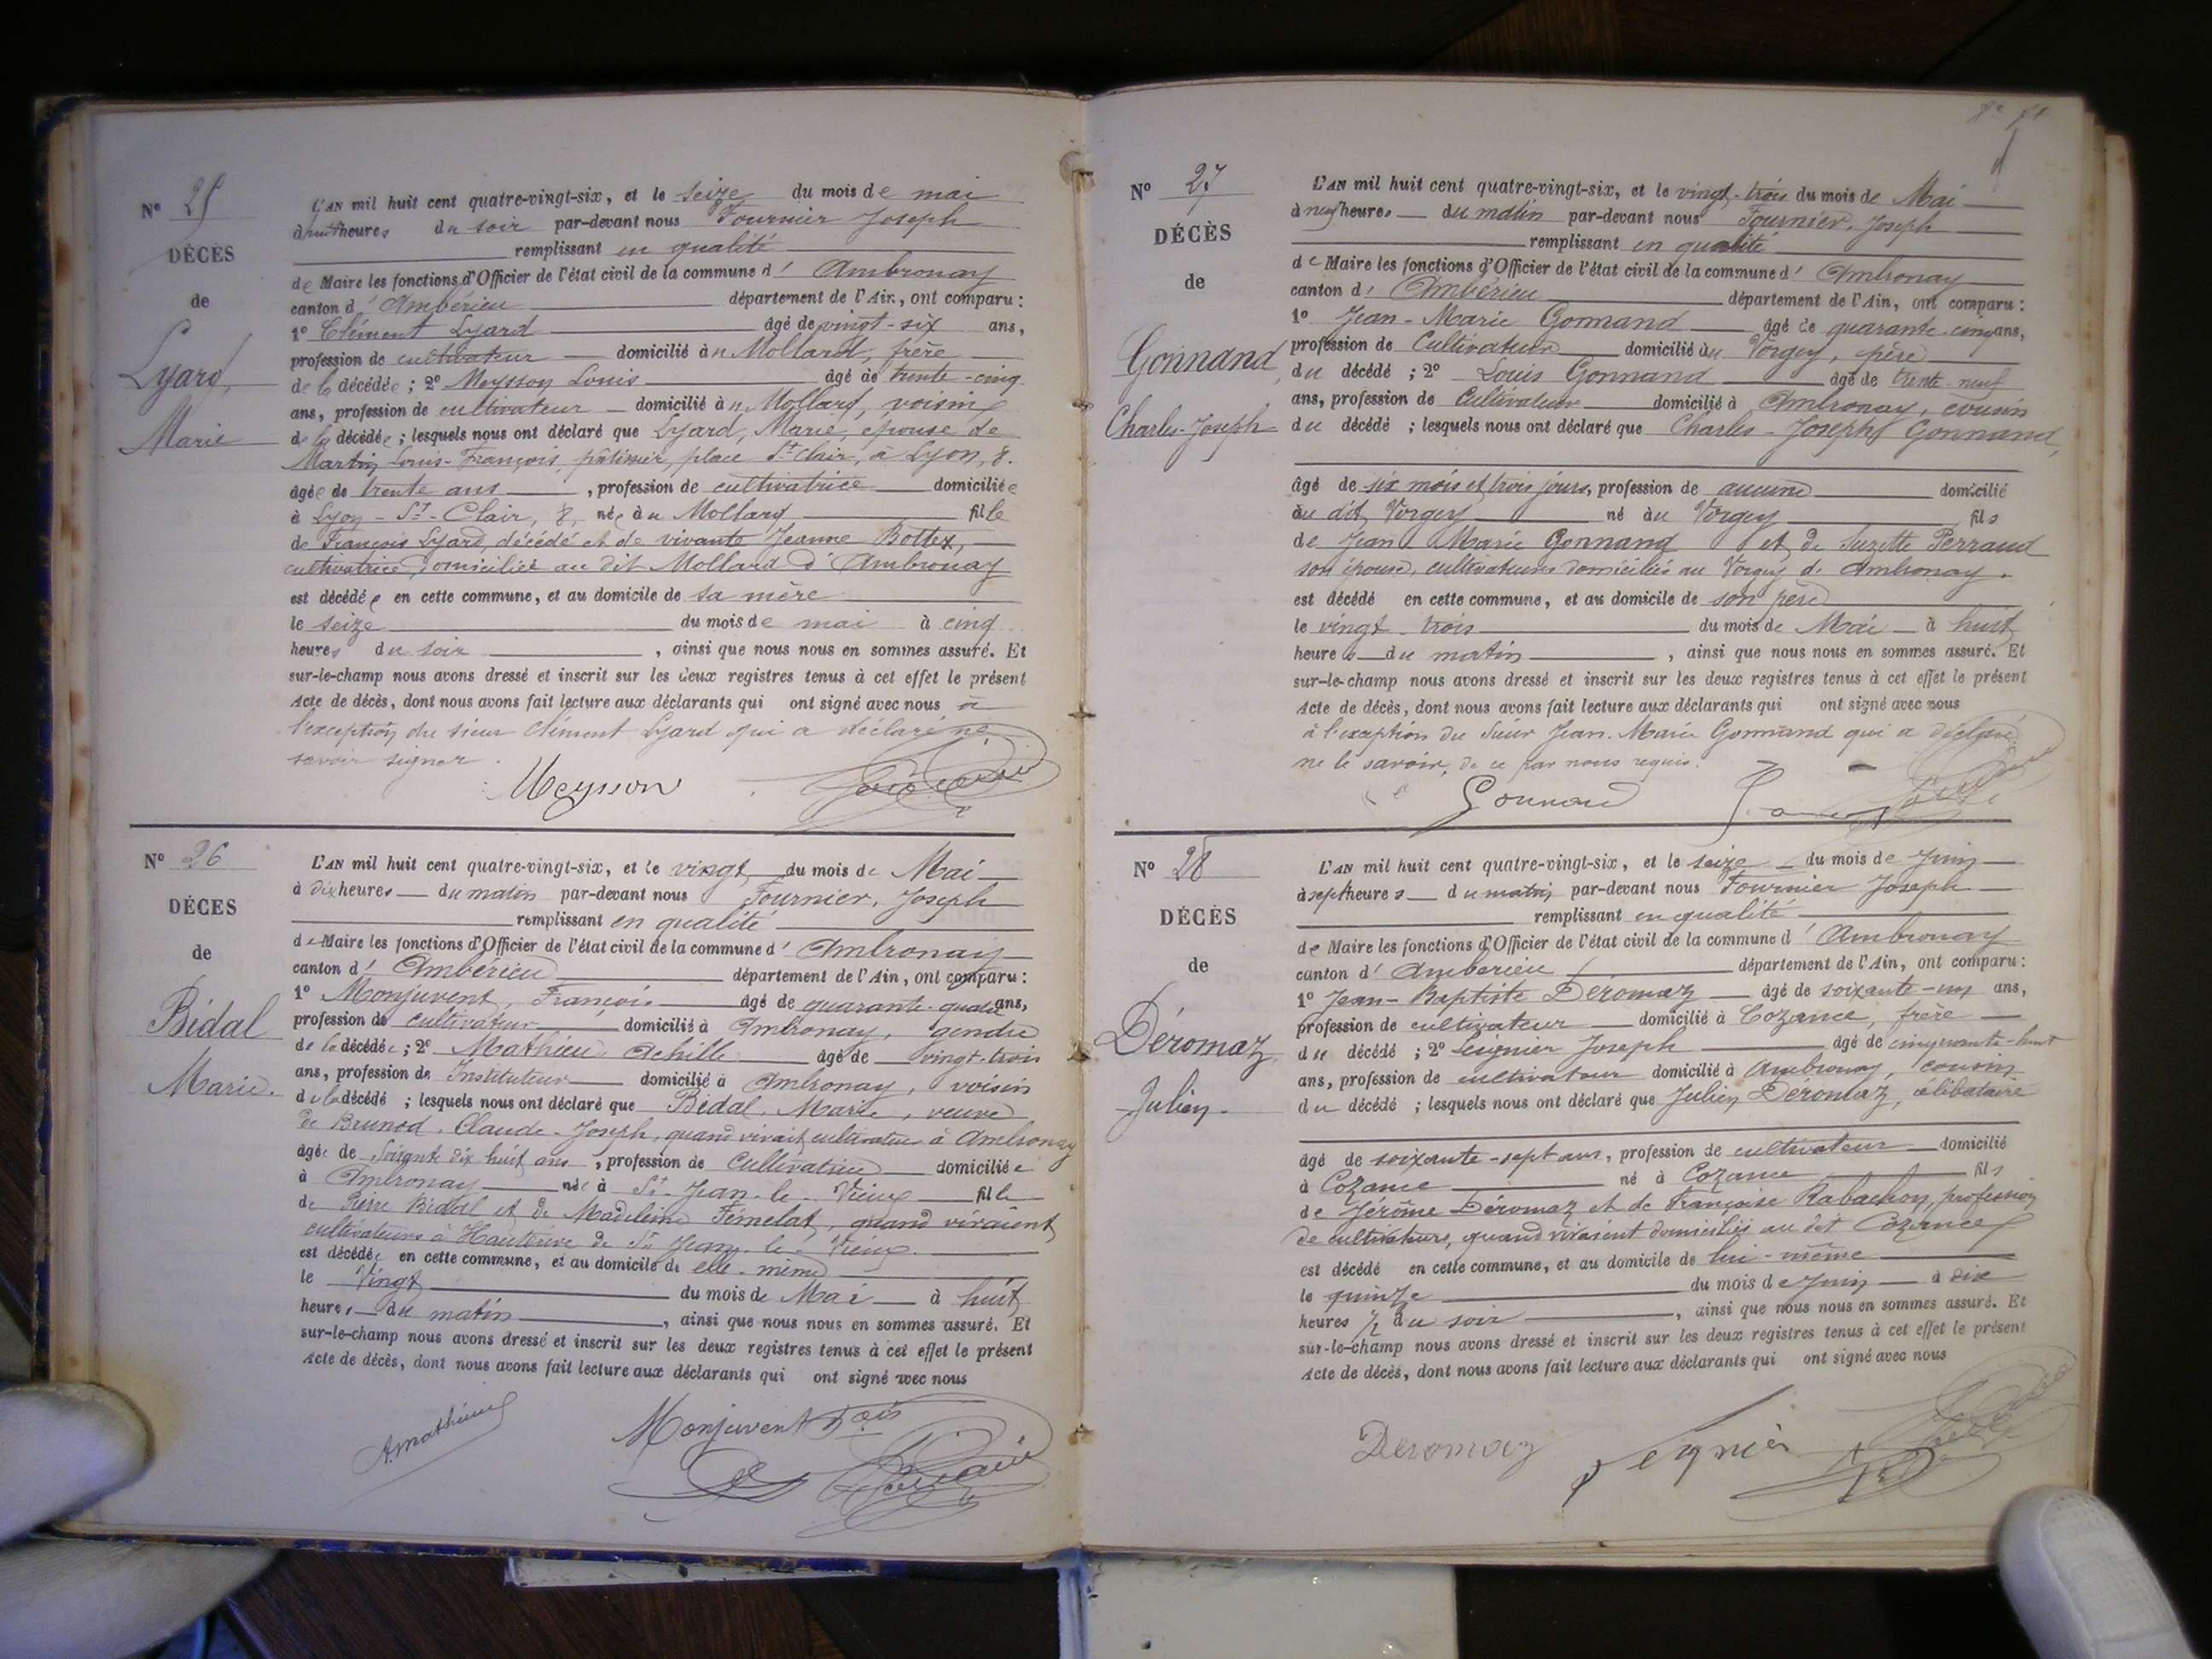 Nº 25
DÉCÈS
de
Lyard,
Marie
L'AN mil huit cent quatre-vingt-six, et le seize du mois de mai
à huit heures du soir par-devant nous Fournier Joseph
remplissant en qualité
de Maire les fonctions d'Officier de l'état civil de la commune d' Ambronay
canton d' Ambérieu département de l'Ain, ont comparu :
1º Clément Lyard âgé de vingt-six ans,
profession de cultivateur domicilié à u Mollard, frère
de la décédée ; 2º Meysson Louis âgé de trente-cinq
ans, profession de cultivateur domicilié à u Mollard, voisin
de la décédée ; lesquels nous ont déclaré que Lyard, Marie, épouse de
Martin Louis-François, pâtissier, place St Clair, à Lyon, 8.
âgée de trente ans, profession de cultivatrice domiciliée
à Lyon - St - Clair, 8, née à u Mollard fille
de François Lyard, décédé et de vivante Jeanne Bottex,
cultivatrice, domiciliée au dit Mollard d'Ambronay
est décédée en cette commune, et au domicile de sa mère
le seize du mois de mai à cinq
heures du soir, ainsi que nous nous en sommes assuré. Et
sur-le-champ nous avons dressé et inscrit sur les deux registres tenus à cet effet le présent
Acte de décès, dont nous avons fait lecture aux déclarants qui ont signé avec nous à
l'exception du sieur Clément Lyard qui a déclaré ne
savoir signer.
Meysson
Nº 26
DÉCES
de
Bidal
Marie.
L'AN mil huit cent quatre-vingt-six, et le vingt du mois de Mai
à dix heures du matin par-devant nous Fournier, Joseph
remplissant en qualité
de Maire les fonctions d'Officier de l'état civil de la commune d' Ambronay
canton d' Ambérieu département de l'Ain, ont comparu :
1º Monjuvent, François âgé de quarante-quatre ans,
profession de cultivateur domicilié à Ambronay, gendre
de la décédée ; 2º Mathieu Achille âgé de vingt-trois
ans, profession de Instituteur domicilié à Ambronay, voisin
de la décédé ; lesquels nous ont déclaré que Bidal, Marie, veuve
de Brunod, Claude-Joseph, quand vivait cultivateur à Ambronay
âgée de Soixante dix huit ans, profession de Cultivatrice domiciliée
à Ambronay née à St-Jean-le-Vieux fille
de Pierre Bidal et de Madeleine Fémelat, quand vivaient
cultivateurs à Hauterive de St Jean-le-Vieux
est décédée en cette commune, et au domicile de elle-même
le Vingt du mois de Mai à huit
heures du matin, ainsi que nous nous en sommes assuré. Et
sur-le-champ nous avons dressé et inscrit sur les deux registres tenus à cet effet le présent
Acte de décès, dont nous avons fait lecture aux déclarants qui ont signé avec nous
A. Mathieu
Monjuvent fçois
Nº 27
DÉCÈS
de
Gonnand,
Charles-Joseph
L'AN mil huit cent quatre-vingt-six, et le vingt-trois du mois de Mai
à neuf heures du matin par-devant nous Fournier, Joseph
remplissant en qualité
de Maire les fonctions d'Officier de l'état civil de la commune d' Ambronay
canton d' Ambérieu département de l'Ain, ont comparu :
1º Jean-Marie Gonnand âgé de quarante-cinq ans,
profession de Cultivateur domicilié àu Vorgey, père
du décédé ; 2º Louis Gonnand âgé de trente-neuf
ans, profession de Cultivateur domicilié à Ambronay, cousin
du décédé ; lesquels nous ont déclaré que Charles-Joseph Gonnand,
âgé de six mois et trois jours, profession de aucune domicilié
àu dit Vorgey né àu Vorgey fils
de Jean-Marie Gonnand et de Suzette Perraud
son épouse, cultivateurs domiciliés au Vorgey d'Ambronay.
est décédé en cette commune, et au domicile de son père
le vingt-trois du mois de Mai à huit
heures du matin, ainsi que nous nous en sommes assuré. Et
sur-le-champ nous avons dressé et inscrit sur les deux registres tenus à cet effet le présent
Acte de décès, dont nous avons fait lecture aux déclarants qui ont signé avec nous
à l'exception du Sieur Jean-Marie Gonnand qui a déclaré
ne le savoir, de ce par nous requis.
Gonnand
Nº 28
DÉCÈS
de
Déromaz
Julien.
L'AN mil huit cent quatre-vingt-six, et le seize du mois de Juin
à sept heures du matin par-devant nous Fournier Joseph
remplissant en qualité
de Maire les fonctions d'Officier de l'état civil de la commune d' Ambronay
canton d' Amberieu département de l'Ain, ont comparu :
1º Jean-Baptiste Déromaz âgé de soixante-un ans,
profession de cultivateur domicilié à Cozance, frère
du décédé ; 2º Seignier Joseph âgé de cinquante-huit
ans, profession de cultivateur domicilié à Ambronay, cousin
du décédé ; lesquels nous ont déclaré que Julien Déromaz, célibataire
âgé de soixante-sept ans, profession de cultivateur domicilié
à Cozance né à Cozance fils
de Jérôme Déromaz et de Françoise Rabachon, profession
de cultivateurs, quand vivaient domiciliés au dit Cozance
est décédé en cette commune, et au domicile de lui-même
le quinze du mois de Juin à dix
heures ½ du soir, ainsi que nous nous en sommes assuré. Et
sur-le-champ nous avons dressé et inscrit sur les deux registres tenus à cet effet le présent
Acte de décès, dont nous avons fait lecture aux déclarants qui ont signé avec nous
Deromaz
Seignier